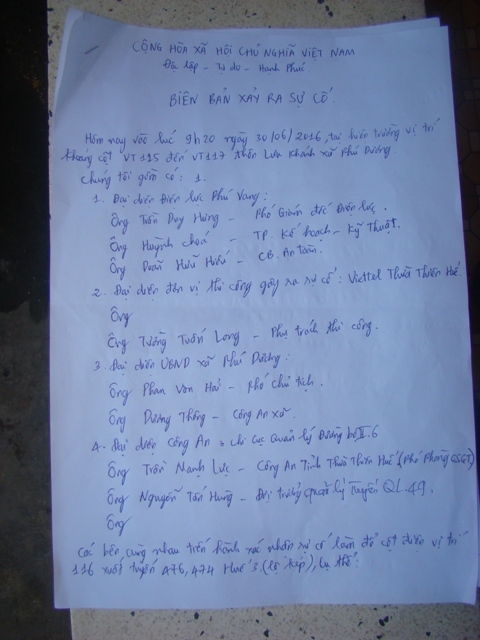 CỘNG HÒA XÃ HỘI CHỦ NGHĨA VIỆT NAM
Độc lập - Tự do - Hạnh Phúc
BIÊN BẢN XẢY RA SỰ CỐ.
Hôm nay vào lúc 9h20 ngày 30/06/2016, tại hiện trường vị trí
khoảng cột VT115 đến VT117 thôn Lưu Khánh xã Phú Dương.
Chúng tôi gồm có: 1.
1. Đại diện Điện lực Phú Vang:
Ông Trần Duy Hùng - Phó Giám đốc Điện lực.
Ông Huỳnh - TP. Kế hoạch - Kỹ Thuật.
Ông Đoàn Hữu Hiếu - CB. An toàn.
2. Đại diện đơn vị thi công gây ra sự cố: Viettel Thừa Thiên Huế.
Ông
Ông Tường Tuấn Long - Phụ trách thi công.
3. Đại diện UBND xã Phú Dương:
Ông Phan Văn Hải - Phó chủ tịch.
Ông Dương Thông - Công An xã.
4. Đại diện Công An và chi cục Quản lý Đường bộ II.6
Ông Trần Mạnh Lực - Công An Tỉnh Thừa Thiên Huế (Phó Phòng CSGT)
Ông Nguyễn Tấn Hùng - Đội trưởng quản lý tuyến QL.49.
Ông
Các bên cùng nhau tiến hành xác nhận sự cố làm đổ cột điện vị trí
116 xuất tuyến 476, 474 Huế 3 (lộ kép), cụ thể: